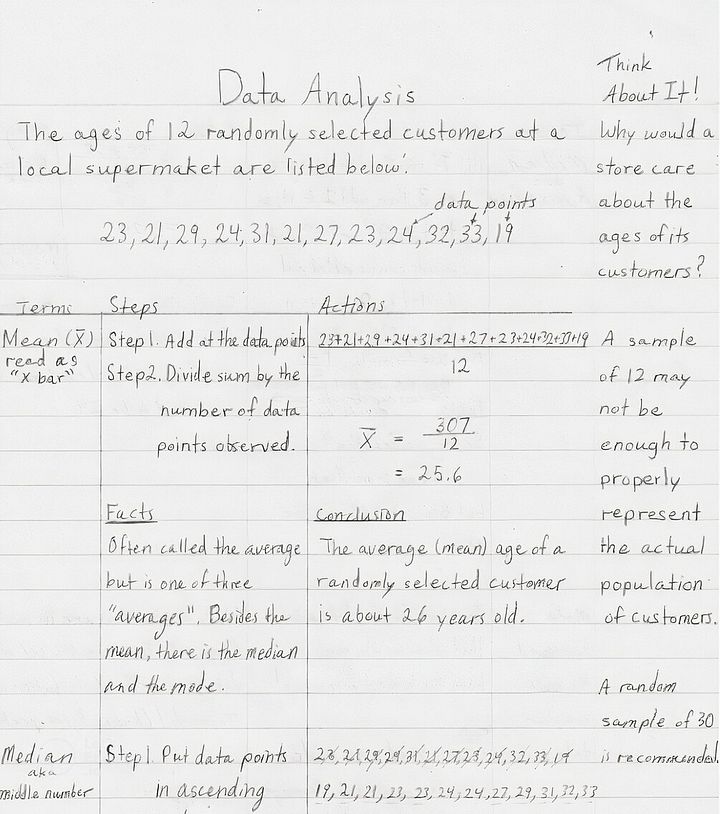 Data Analysis
The ages of 12 randomly selected customers at a
local supermaket are listed below:
data points
23, 21, 29, 24, 31, 21, 27, 23, 24, 32, 33, 19
Think
About It!
Why would a
store care
about the
ages of its
customers?
Terms Steps Actions
Mean (X̄)
read as
"X bar"
Step 1. Add at the data points
Step 2. Divide sum by the
number of data
points observed.
23+21+29+24+31+21+27+23+24+32+33+19
12
X̄ = 307
12
= 25.6
A sample
of 12 may
not be
enough to
properly
represent
the actual
population
of customers.
Facts
Often called the average
but is one of three
"averages". Besides the
mean, there is the median
and the mode.
Conclusion
The average (mean) age of a
randomly selected customer
is about 26 years old.
A random
sample of 30
is recommended.
Median
aka
middle number
Step 1. Put data points
in ascending
23, 21, 29, 24, 31, 21, 27, 23, 24, 32, 33, 19
19, 21, 21, 23, 23, 24, 24, 27, 29, 31, 32, 33